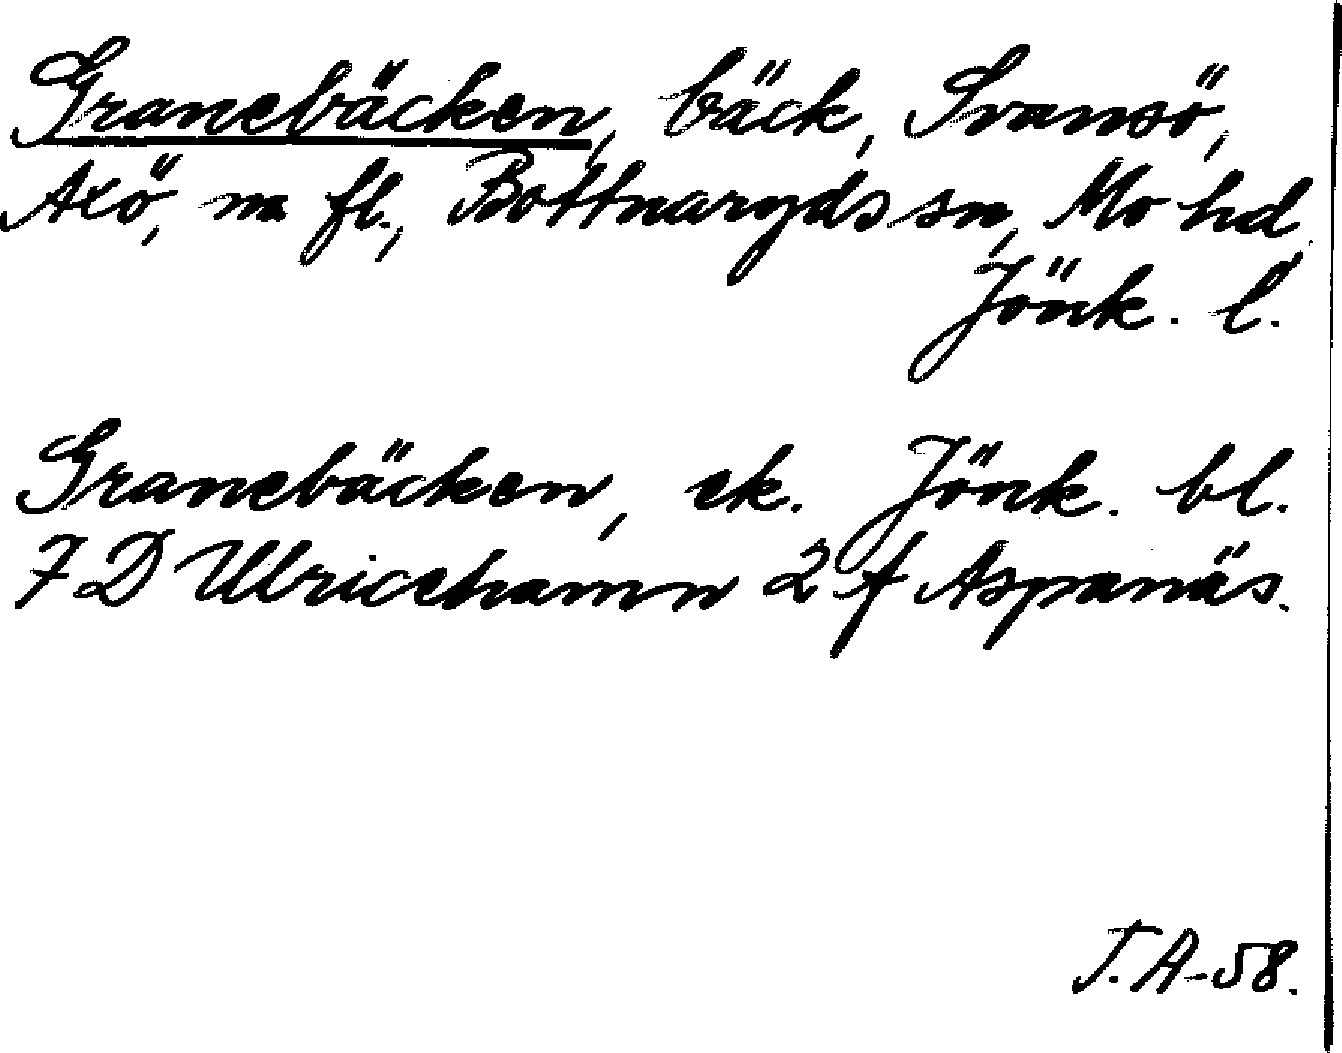 Granebäcken, bäck, Svansö,
Axö, m fl., Bottnaryds sn, Mo hd
Jönk. l.
Granebäcken, ek. Jönk. bl.
7 D Ulricehamn 2 f Aspanäs.
T.A-58.